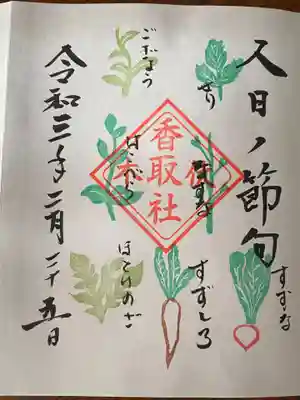 人日ノ節句
せり
なずな
すずな
香取社
すずしろ
ごぎょう
はこべら
ほとけのざ
令和三年二月二十五日